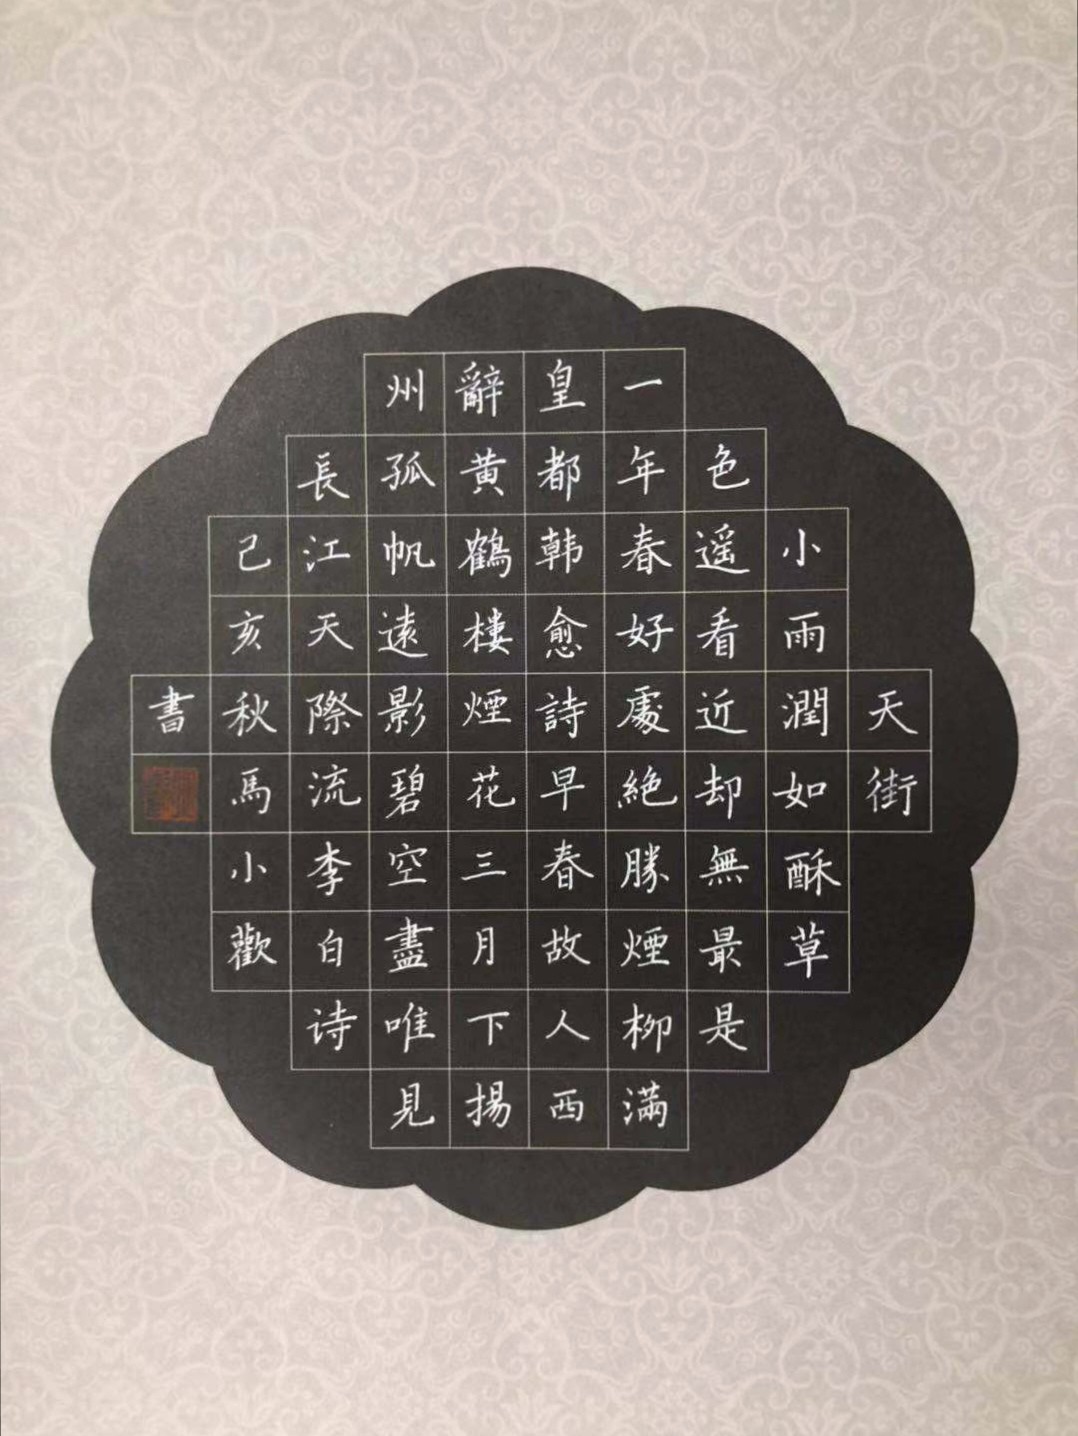 天街
小雨潤如酥草
色遥看近却無最是
一年春好處絶勝煙柳滿
皇都韩愈詩早春故人西
辭黄鶴樓煙花三月下揚
州孤帆遠影碧空盡唯見
長江天際流李白诗
己亥秋馬小歡
書